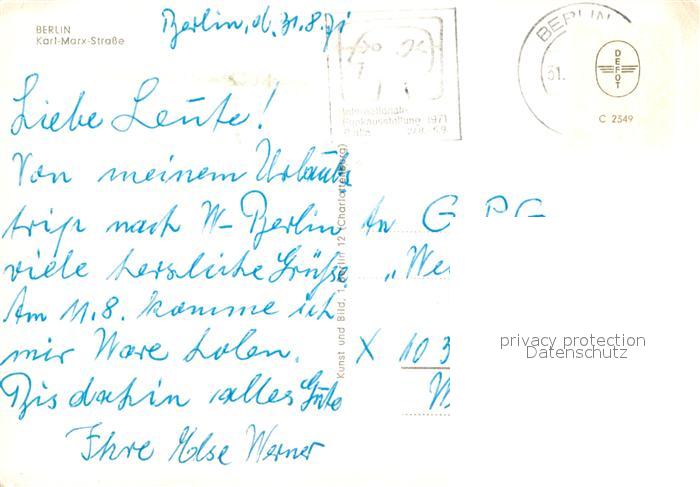 BERLIN
Karl-Marx-Straße
Berlin, d. 31.8.71
Internationale
Funkausstellung 1971
Berlin 27.8.-5.9.
BERLIN
31.
DEFOT
C 2549
Liebe Leute!
Von meinem Urlaubs
trip nach W-Berlin
viele herzliche Grüße.
Am 11.8. komme ich
mir Ware holen.
Bis dahin alles Gute
Ihre Else Werner
Kunst und Bild, 1 Berlin 12 (Charlottenburg)
An G
„We
X 103
privacy protection
Datenschutz